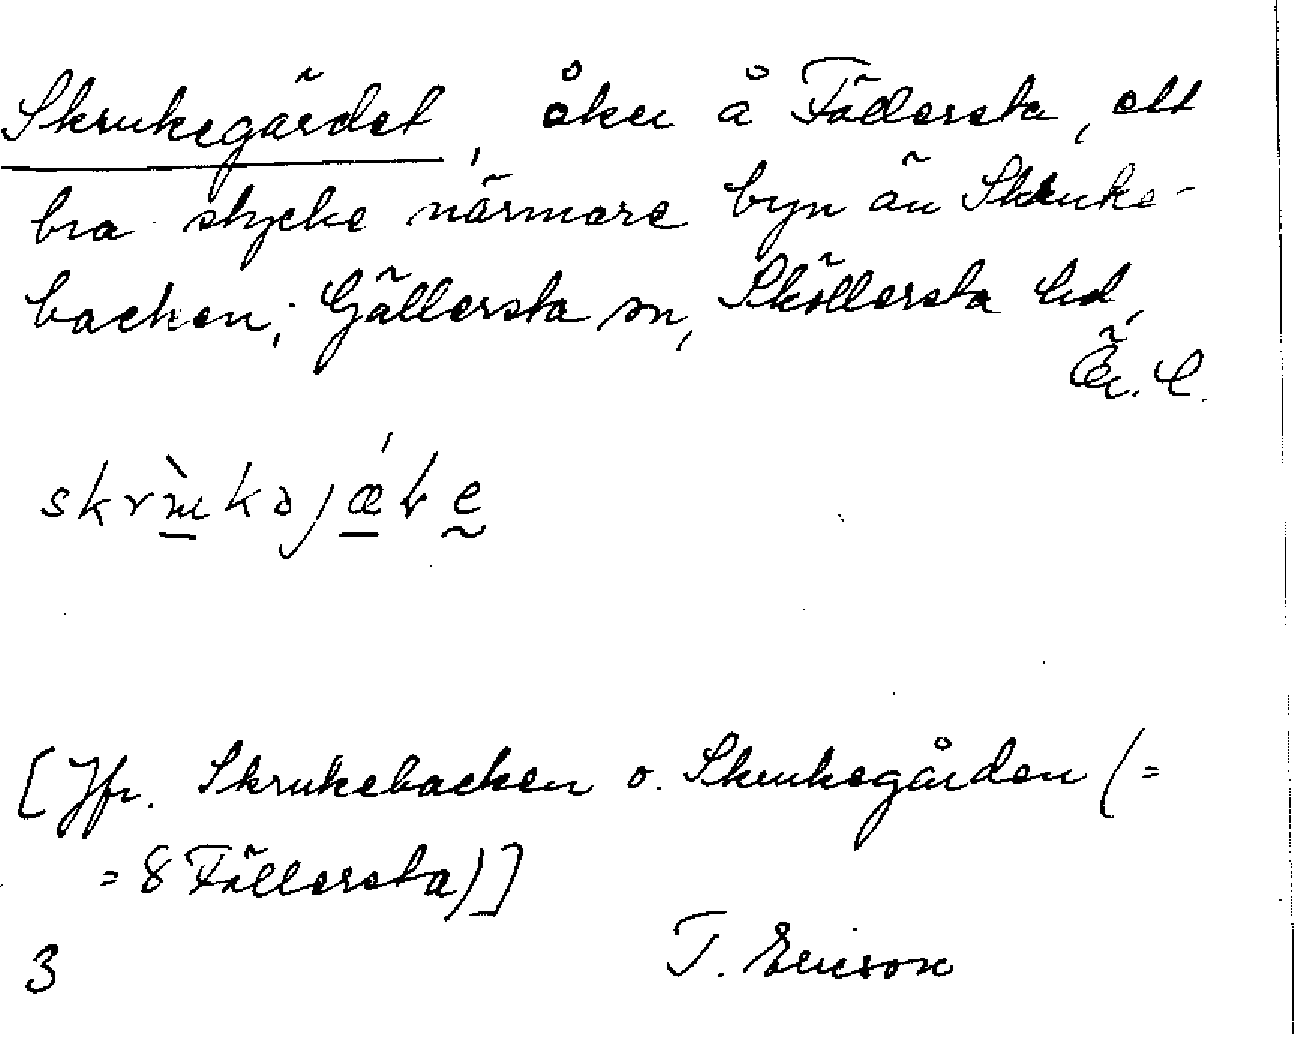 Skrukegärdet, åker å Föllersta, ett
bra stycke närmare byn än Skruke-
backen; Gällersta sn, Sköllersta hd,
Ör. l.
[Jfr. Skrukebacken o. Skrukegården (=
= 8 Föllersta)]
3 T. Ericson